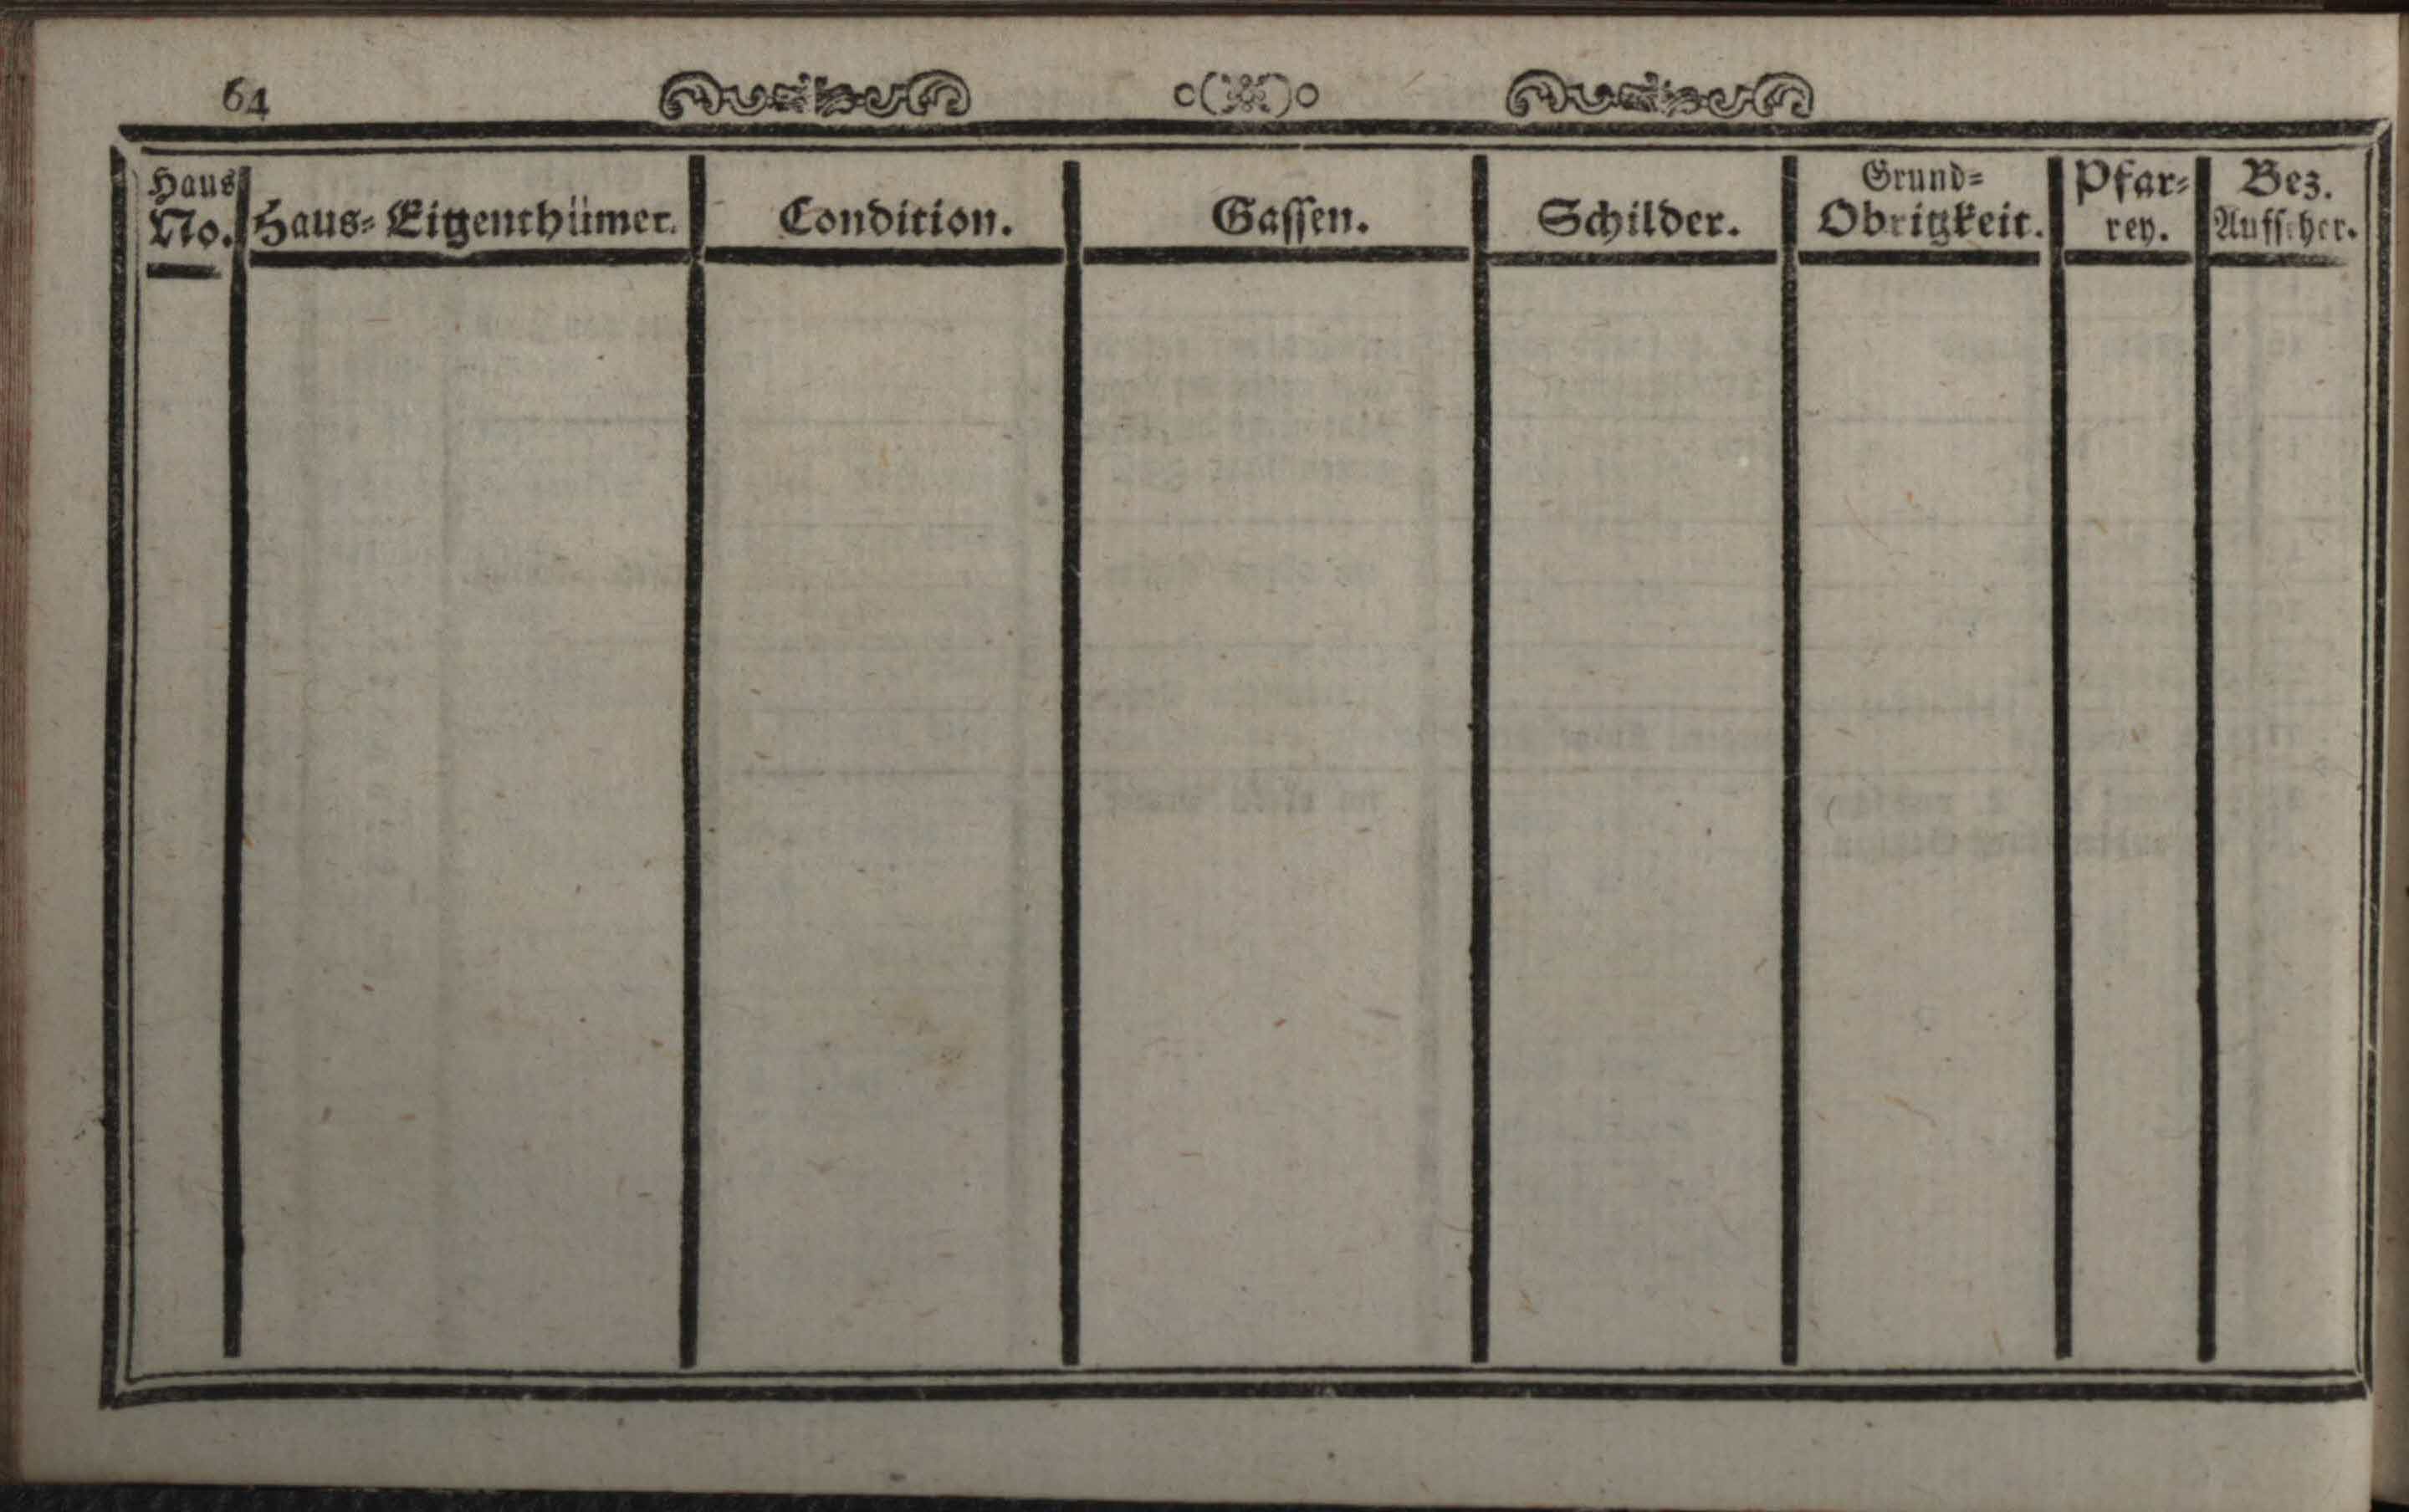 64
Haus No. Haus-Eigenthümer. Condition. Gassen. Schilder. Grund-Obrigkeit. Pfar-rey. Bez. Aufseher.